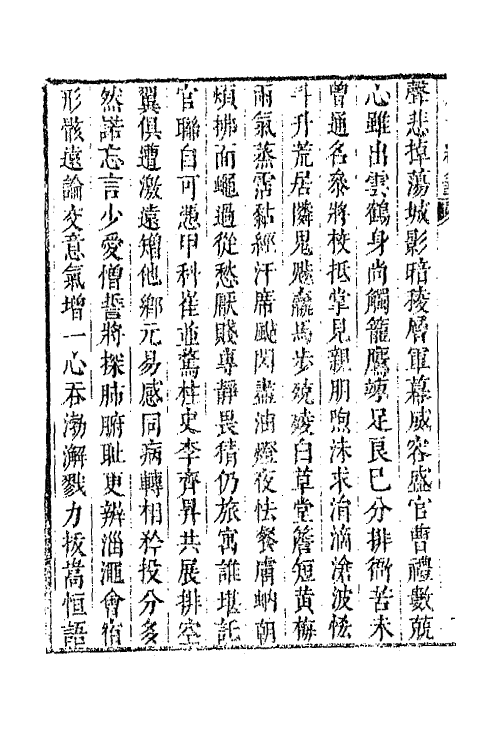 聲悲掉蕩城影暗稜層軍幕威容盛官曹禮數兢
心雖出雲鶴身尚觸籠鷹竦足良巳分排衙苦未
曾通名參將校抵掌見親朋喣沫求涓滴滄波怯
斗升荒居隣鬼魅羸馬步殑㱥白草堂簷短黄梅
雨氣蒸霑黏經汗席颭閃盡油燈夜怯餐膚蚋朝
煩拂面蠅過從愁厭賤專靜畏猜仍旅寓誰堪託
官聯自可憑甲科崔並驚柱史李齊昇共展排空
翼俱遭激遠矰他鄉元易感同病轉相矜投分多
然諾忘言少愛憎誓將探肺腑耻更辨淄澠會宿
形骸遠論交意氣增一心吞渤澥戮力拔嵩恒語